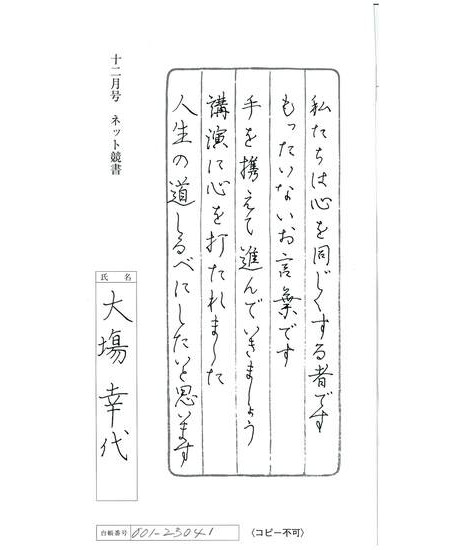 私たちは心を同じくする者です
もったいないお言葉です
手を携えて進んでいきましょう
講演に心を打たれました
人生の道しるべにしたいと思います
十二月号 ネット競書
氏名
大場 幸代
台帳番号 001-23041
(コピー不可)